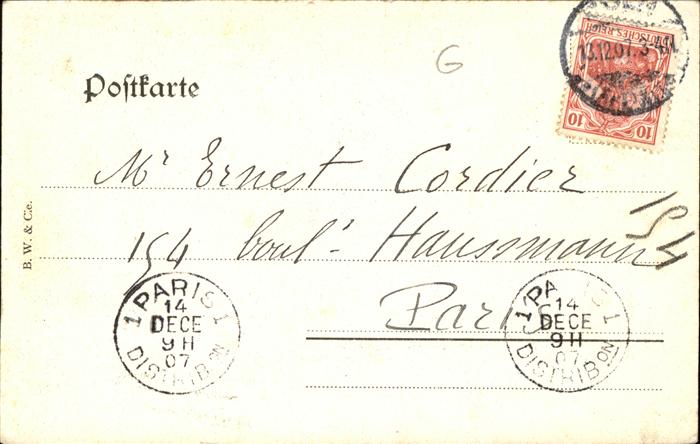 G
DEUTSCHES REICH
13.12.07. 3-4N.
10 10
Postkarte
Mr Ernest Cordier
154 boul.d Haussmann
154
Paris
B. W. & Cie.
1 PARIS 1
14
DECE
9 H
07
DISTRIB ON
1 PARIS 1
14
DECE
9 H
07
DISTRIB ON